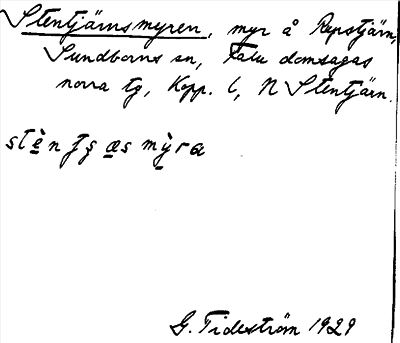 Stentjärnsmyren, myr å Repstjärn,
Sundborns sn, Falu domsagas
norra tg, Kopp. l, N Stentjärn.
stèntʂæsmỳra
G. Tideström 1929